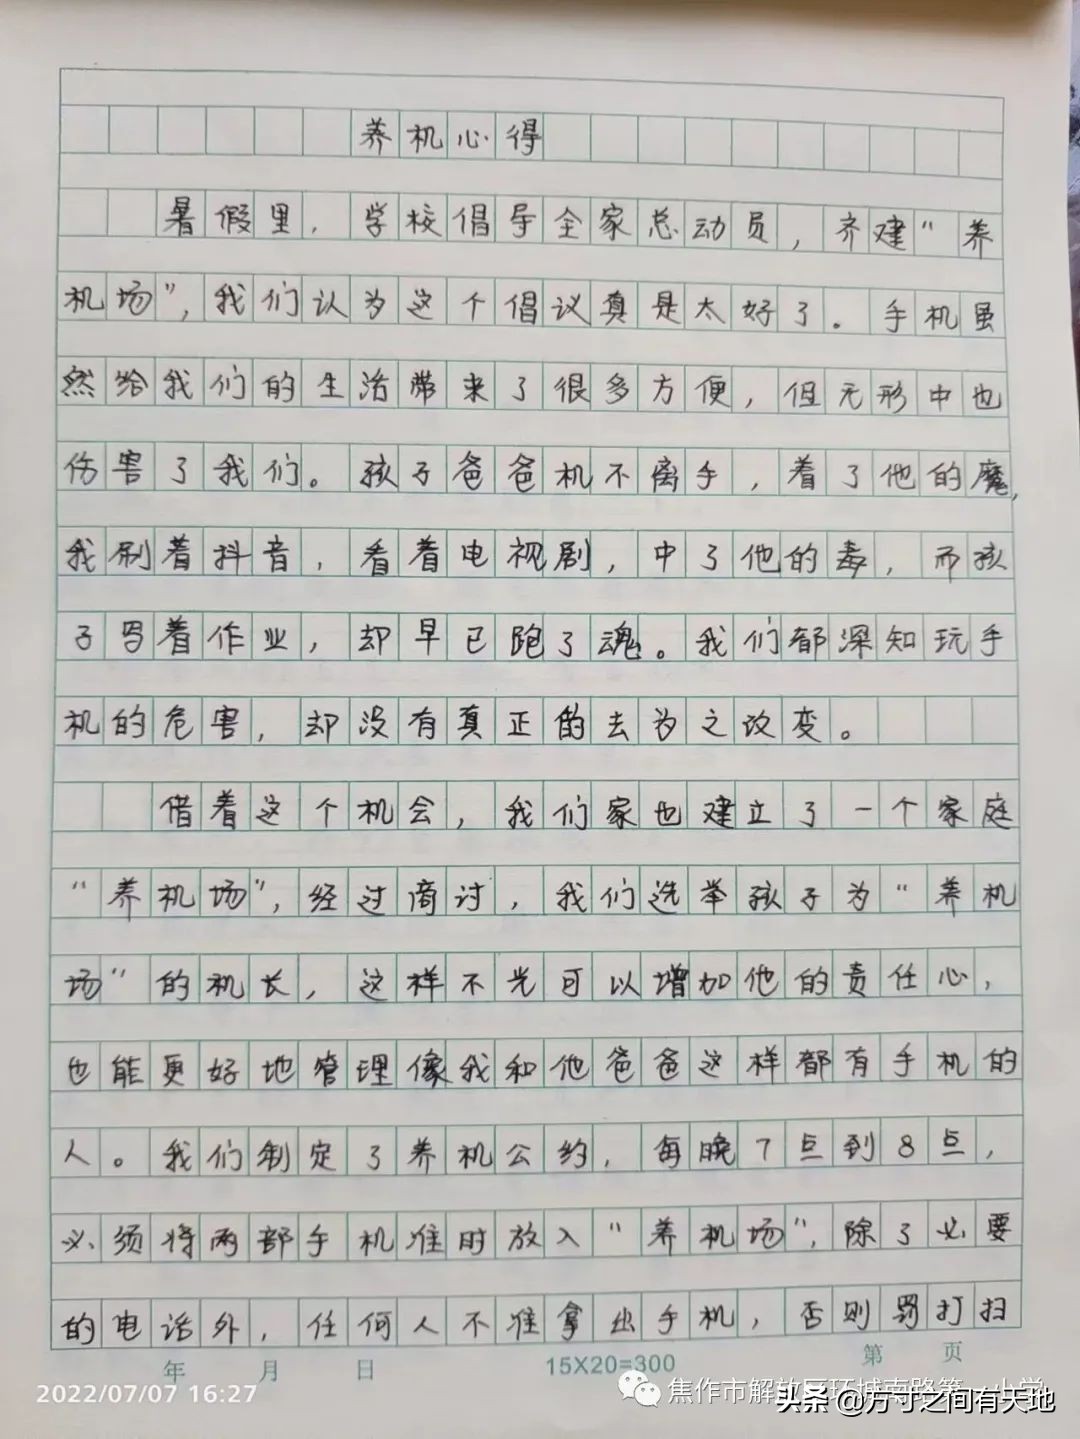 养机心得
暑假里，学校倡导全家总动员，齐建“养
机场”，我们认为这个倡议真是太好了。手机虽
然给我们的生活带来了很多方便，但无形中也
伤害了我们。孩子爸爸机不离手，着了他的魔，
我刷着抖音，看着电视剧，中了他的毒，而孩
子写着作业，却早已跑了魂。我们都深知玩手
机的危害，却没有真正的去为之改变。
借着这个机会，我们家也建立了一个家庭
“养机场”，经过商讨，我们选举孩子为“养机
场”的机长，这样不光可以增加他的责任心，
也能更好地管理像我和他爸爸这样都有手机的
人。我们制定了养机公约，每晚7点到8点，
必须将两部手机准时放入“养机场”，除了必要
的电话外，任何人不准拿出手机，否则罚打扫
年 月 日 15X20=300 第 页
2022/07/07 16:27
焦作市解放区环城南路第一小学
头条 @方寸之间有天地